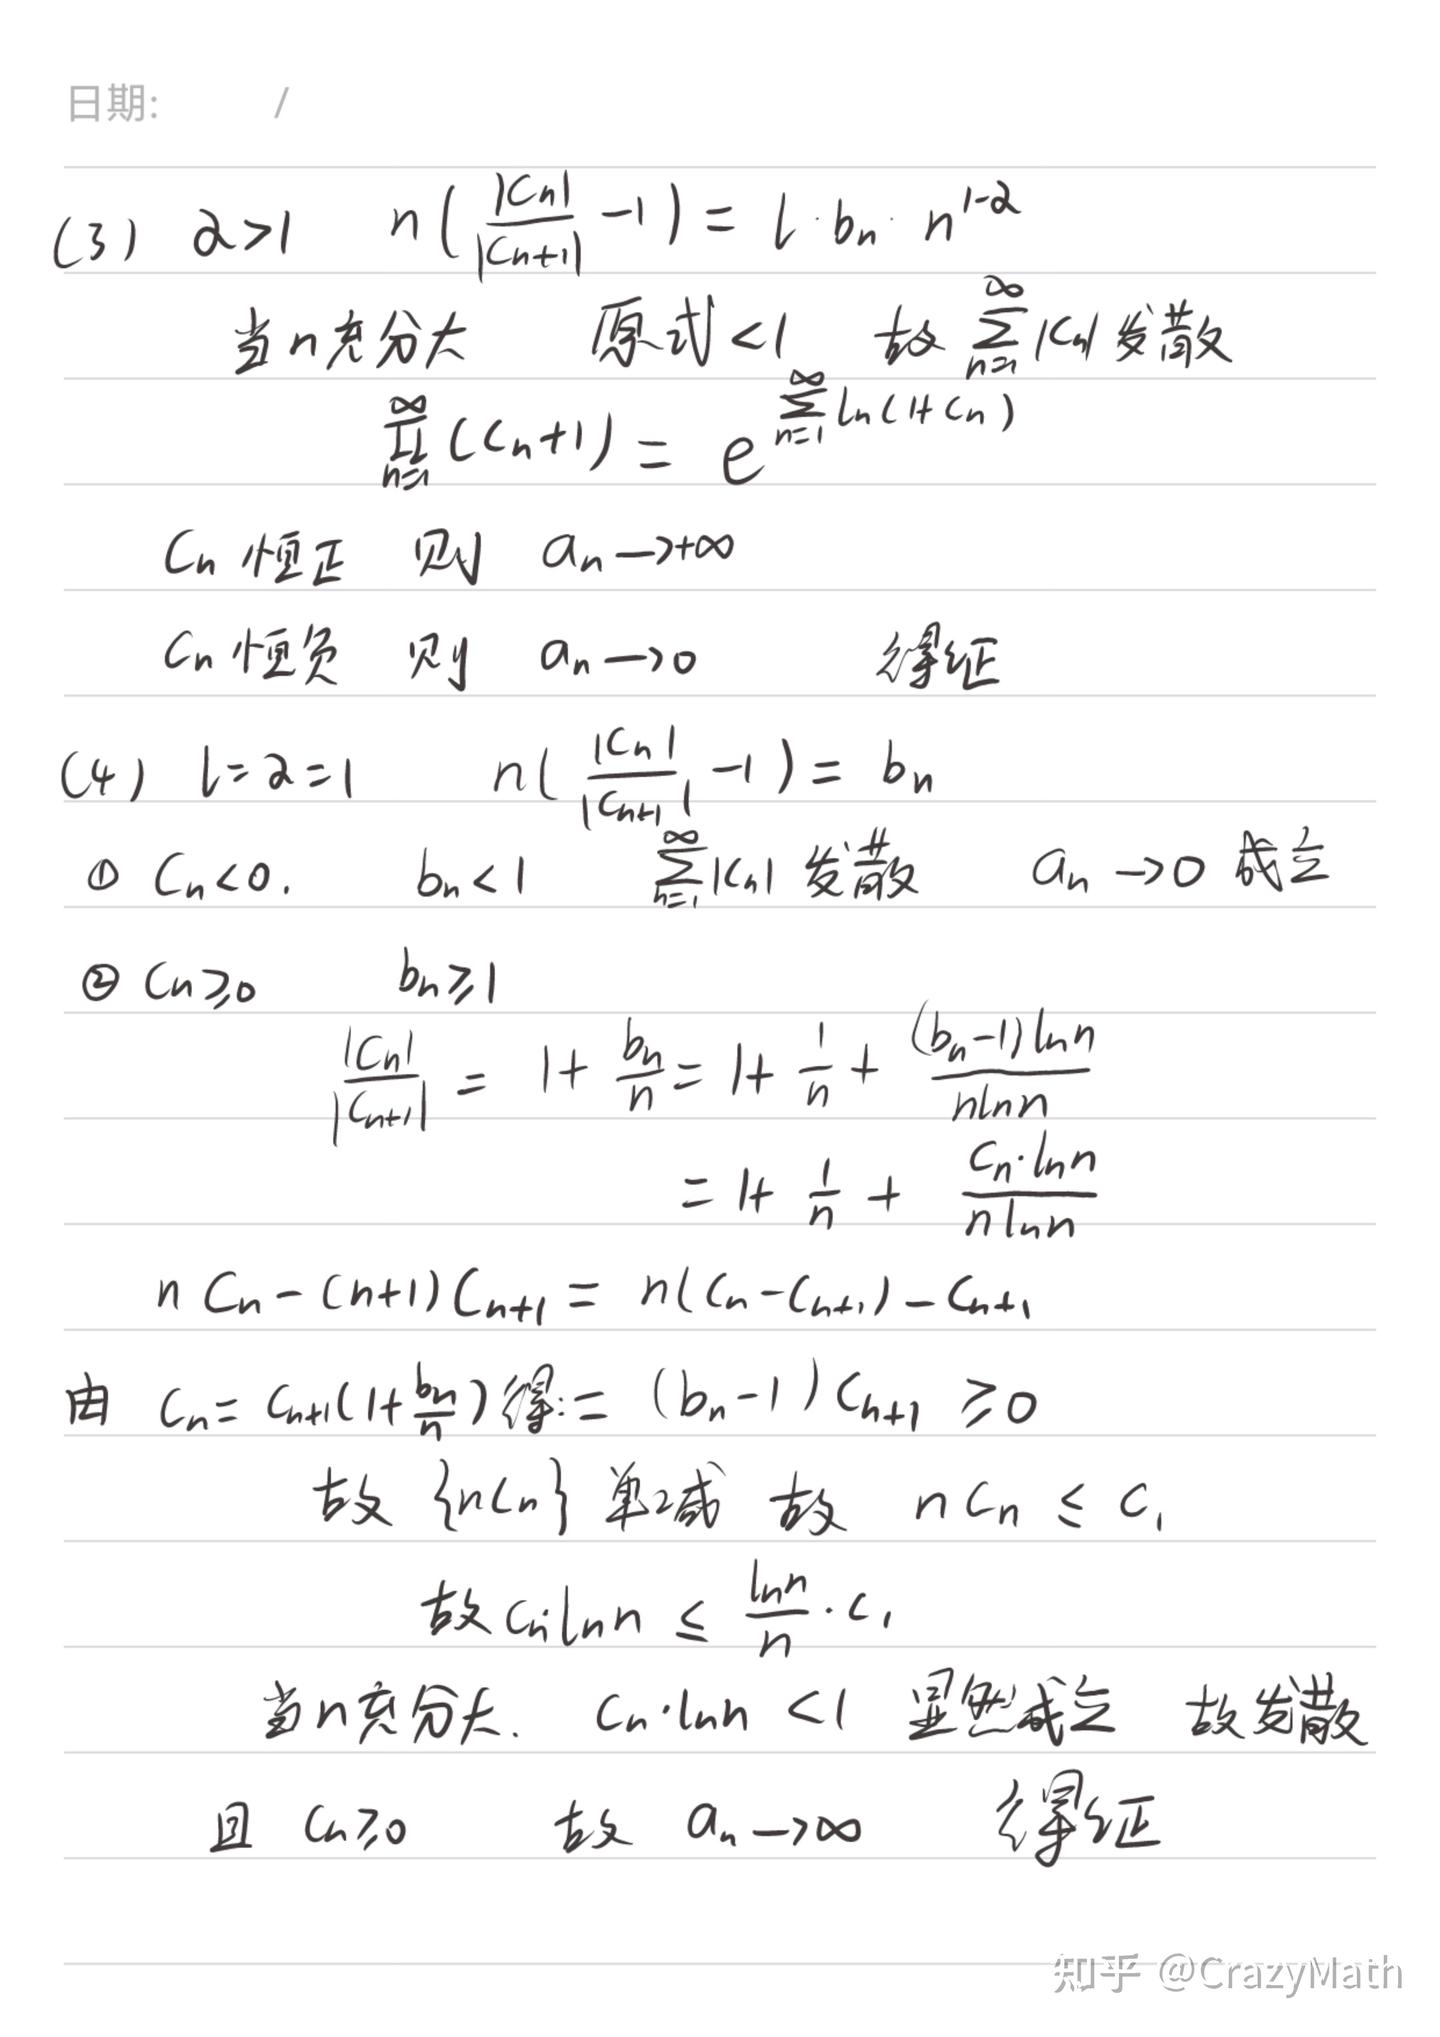 日期: /
(3) α>1 n(|Cn|/|Cn+1| -1) = l·bn·n^{1-α}
当n充分大 原式<1 故 ∑_{n=1}^{∞}|Cn|发散
∏_{n=1}^{∞}(Cn+1) = e^{∑_{n=1}^{∞}ln(1+Cn)}
Cn恒正 则 an→+∞
Cn恒负 则 an→0 得证
(4) l=α=1 n(|Cn|/|Cn+1| -1) = bn
① Cn<0. bn<1 ∑_{n=1}^{∞}|Cn| 发散 an→0 成立
② Cn≥0 bn≥1
|Cn|/|Cn+1| = 1+ bn/n = 1+ 1/n + (bn-1)lnn/nlnn
= 1+ 1/n + Cn·lnn/nlnn
nCn-(n+1)Cn+1 = n(Cn-Cn+1)-Cn+1
由 Cn=Cn+1(1+bn/n)得:= (bn-1)Cn+1 ≥0
故 {nCn} 单减 故 nCn ≤ C1
故Cn·lnn ≤ lnn/n · C1
当n充分大. Cn·lnn <1 显然成立 故发散
且 Cn≥0 故 an→∞ 得证
知乎 @CrazyMath